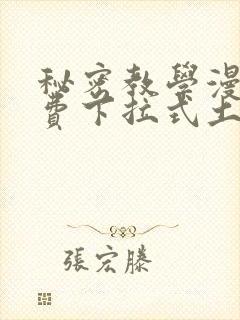 秘密教學漫
費下拉式土
張宏滕